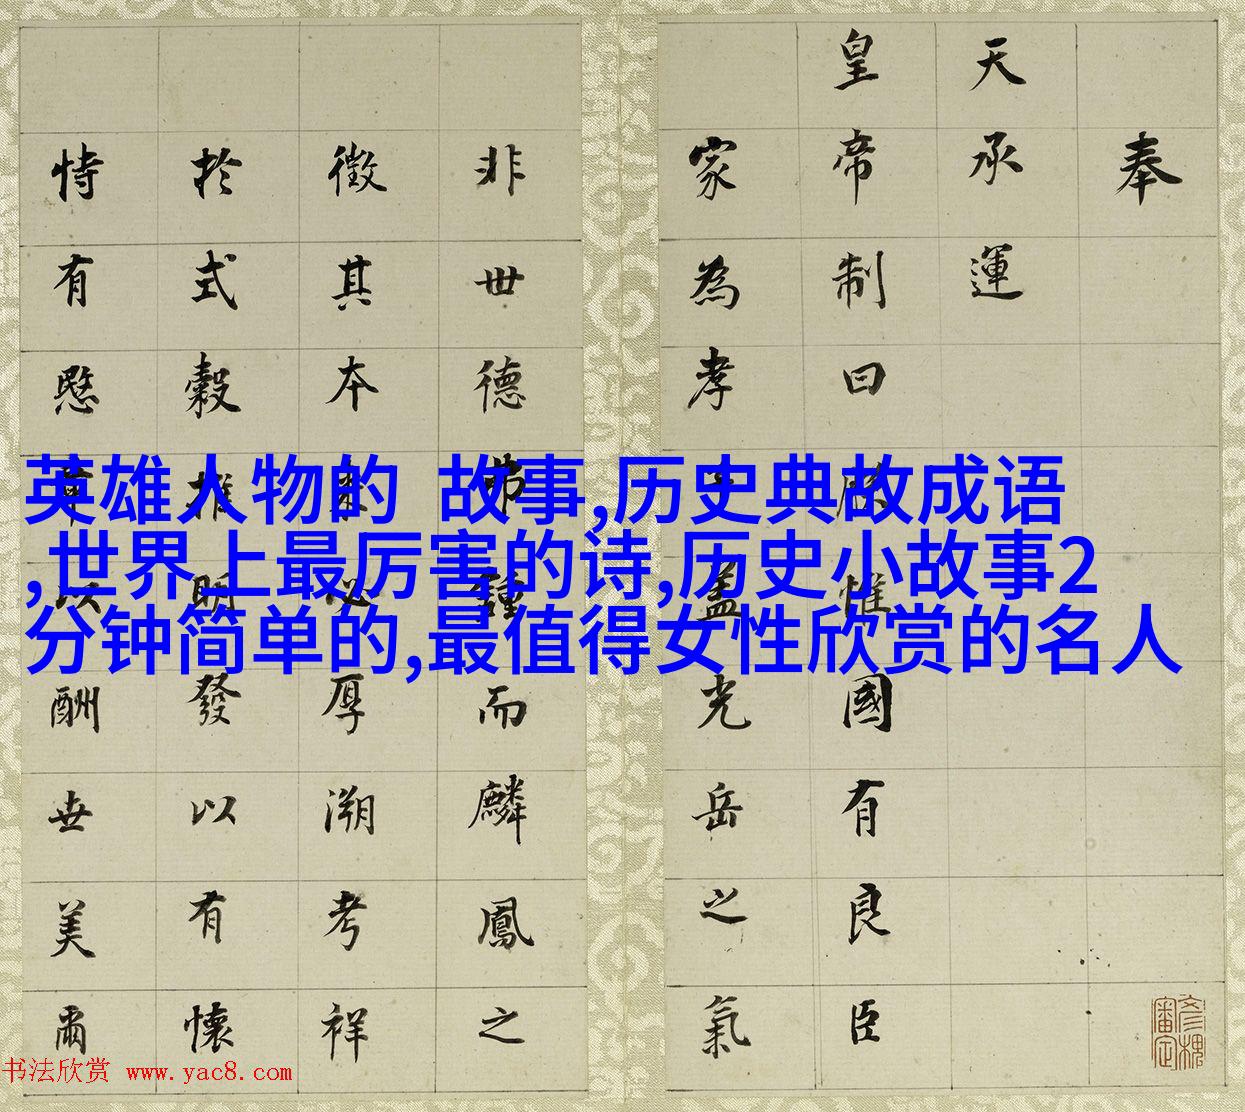 英雄人物的 故事,历史典故成语
,世界上最厉害的诗,历史小故事2
分钟简单的,最值得女性欣赏的名人
奉
天承運
皇帝制曰朕惟國有良臣
家為孝子蓋光岳之氣
非世德弗鍾而麟鳳之
徵其本必厚溯考祥
於式穀推明發以有懷
恃有以酬世美爾
书法欣赏 www.yac8.com